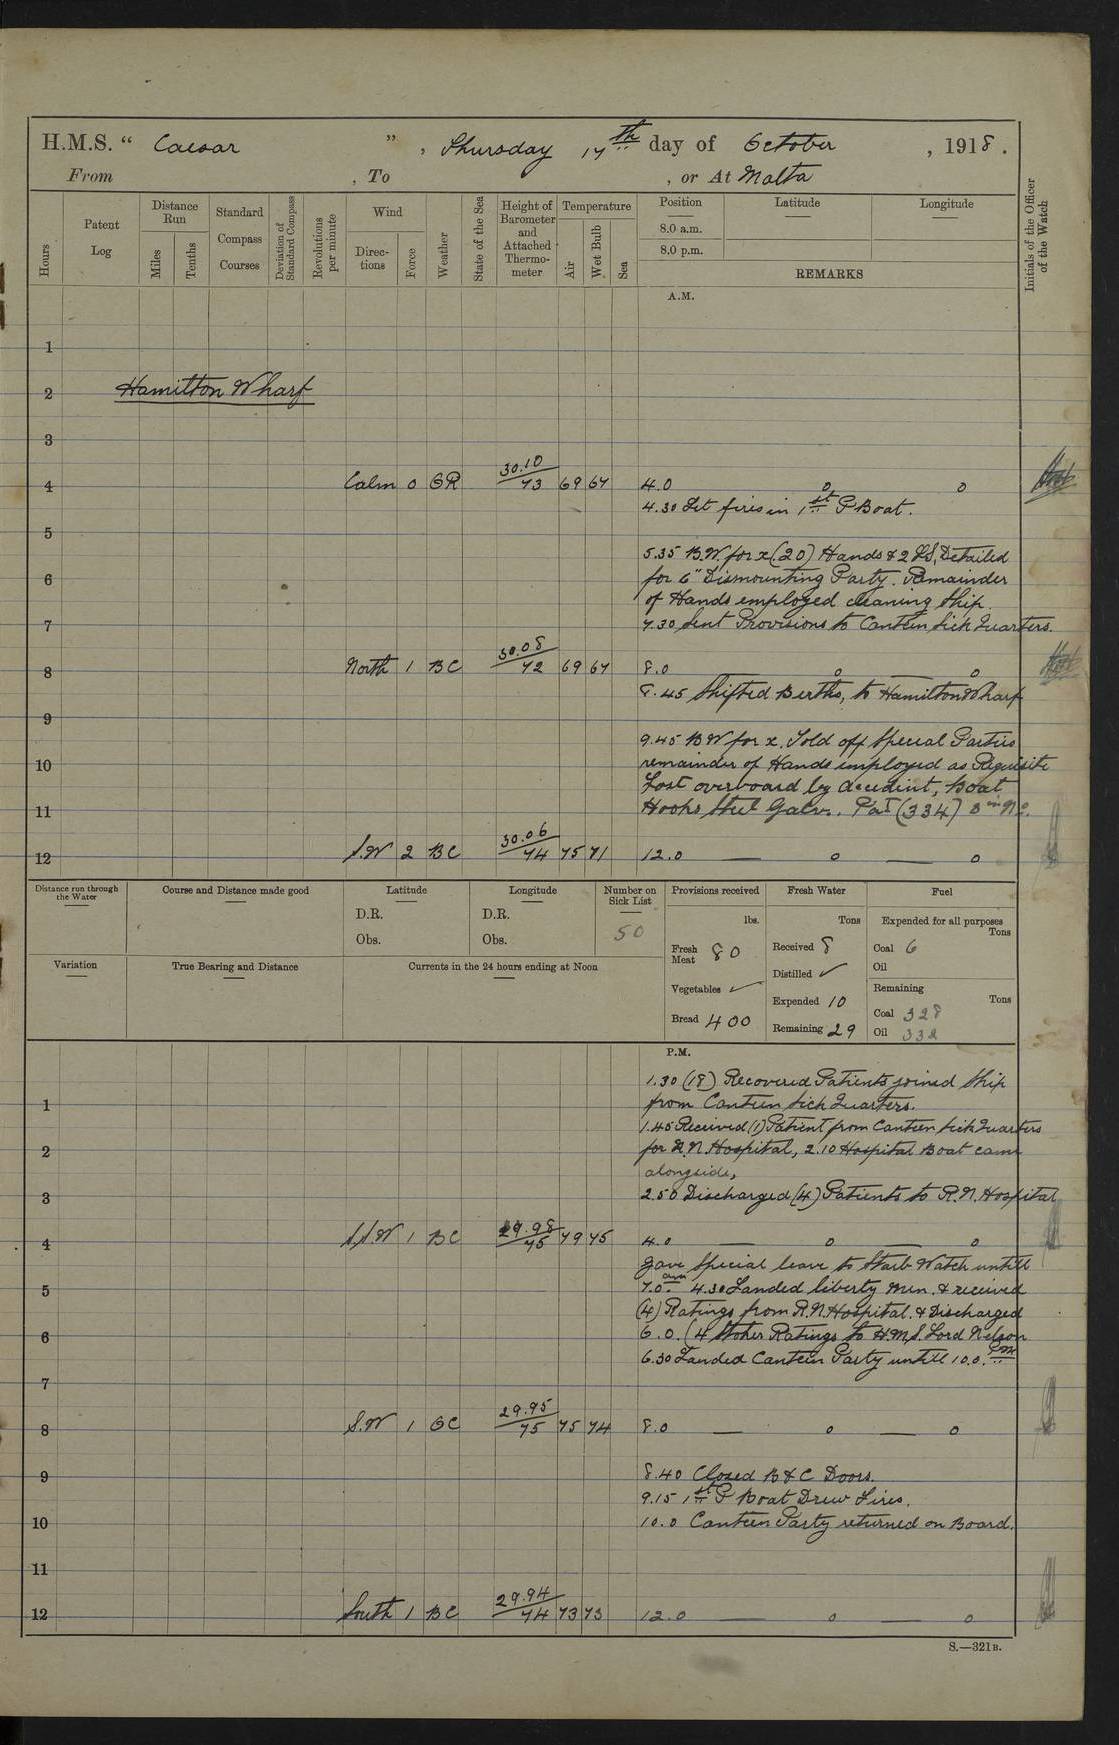 H.M.S. “ Caesar ” , Thursday 17th day of October , 1918 .
From , To , or At Malta
Hours
Patent Log
Distance Run
Miles
Tenths
Standard Compass Courses
Deviation of Standard Compass
Revolutions per minute
Wind
Direc-tions
Force
Weather
State of the Sea
Height of Barometer and Attached Thermo-meter
Temperature
Air
Wet Bulb
Sea
Position
8.0 a.m.
8.0 p.m.
Latitude
Longitude
REMARKS
Initials of the Officer of the Watch
A.M.
1
2 Hamilton Wharf
3
4 Calm 0 OR 30.10 73 69 67 4.0 0 0
4.30 Lit fires in 1st P Boat.
5
5.35 B.W. for x (20) Hands & 2 LS, Detailed
6 for 6" Dismounting Party. Remainder
of Hands employed cleaning Ship.
7 7.30 Sent Provisions to Canteen Sick Quarters.
8 North 1 BC 30.08 72 69 67 8.0 0 — 0
8.45 Shifted Berths, to Hamilton Wharf
9
9.45 BW for x. Told off Special Parties
10 remainder of Hands employed as Requisite
Lost overboard by accident, Boat
11 Hooks Steel Galv. Pat (334) 3 in No.
12 S.W 2 BC 30.06 74 75 71 12.0 — 0 — 0
Distance run through the Water
Course and Distance made good
Latitude
D.R.
Obs.
Longitude
D.R.
Obs.
Number on Sick List
50
Provisions received
lbs.
Fresh Meat 80
Vegetables ✓
Bread 400
Fresh Water
Tons
Received 8
Distilled ✓
Expended 10
Remaining 29
Fuel
Expended for all purposes
Tons
Coal 6
Oil
Remaining
Tons
Coal 328
Oil 332
Variation
True Bearing and Distance
Currents in the 24 hours ending at Noon
P.M.
1.30 (18) Recovered Patients joined Ship
1 from Canteen Sick Quarters.
1.45 Received (1) Patient from Canteen Sick Quarters
2 for R.N. Hospital, 2.10 Hospital Boat came
alongside,
3 2.50 Discharged (4) Patients to R.N. Hospital
4 SSW 1 BC 29.98 75 79 75 4.0 — 0 — 0
Gave Special leave to Starb Watch untill
5 7.0 am. 4.30 Landed liberty men. & received
(4) Ratings from R.N Hospital. & Discharged
6 6.0. (4 Stoker Ratings to H.M.S. Lord Nelson
6.30 Landed Canteen Party untill 10.0. PM
7
8 S.W 1 OC 29.95 75 75 74 8.0 — 0 — 0
9 8.40 Closed B & C Doors.
9.15 1st P Boat Drew Fires.
10 10.0 Canteen Party returned on Board.
11
12 South 1 BC 29.94 74 73 73 12.0 — 0 — 0
S.—321B.